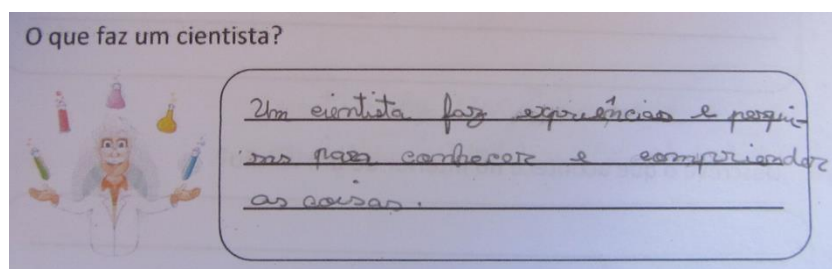 O que faz um cientista?
Um cientista faz expriências e pesqui-
para conhecer e compriender
as coisas.